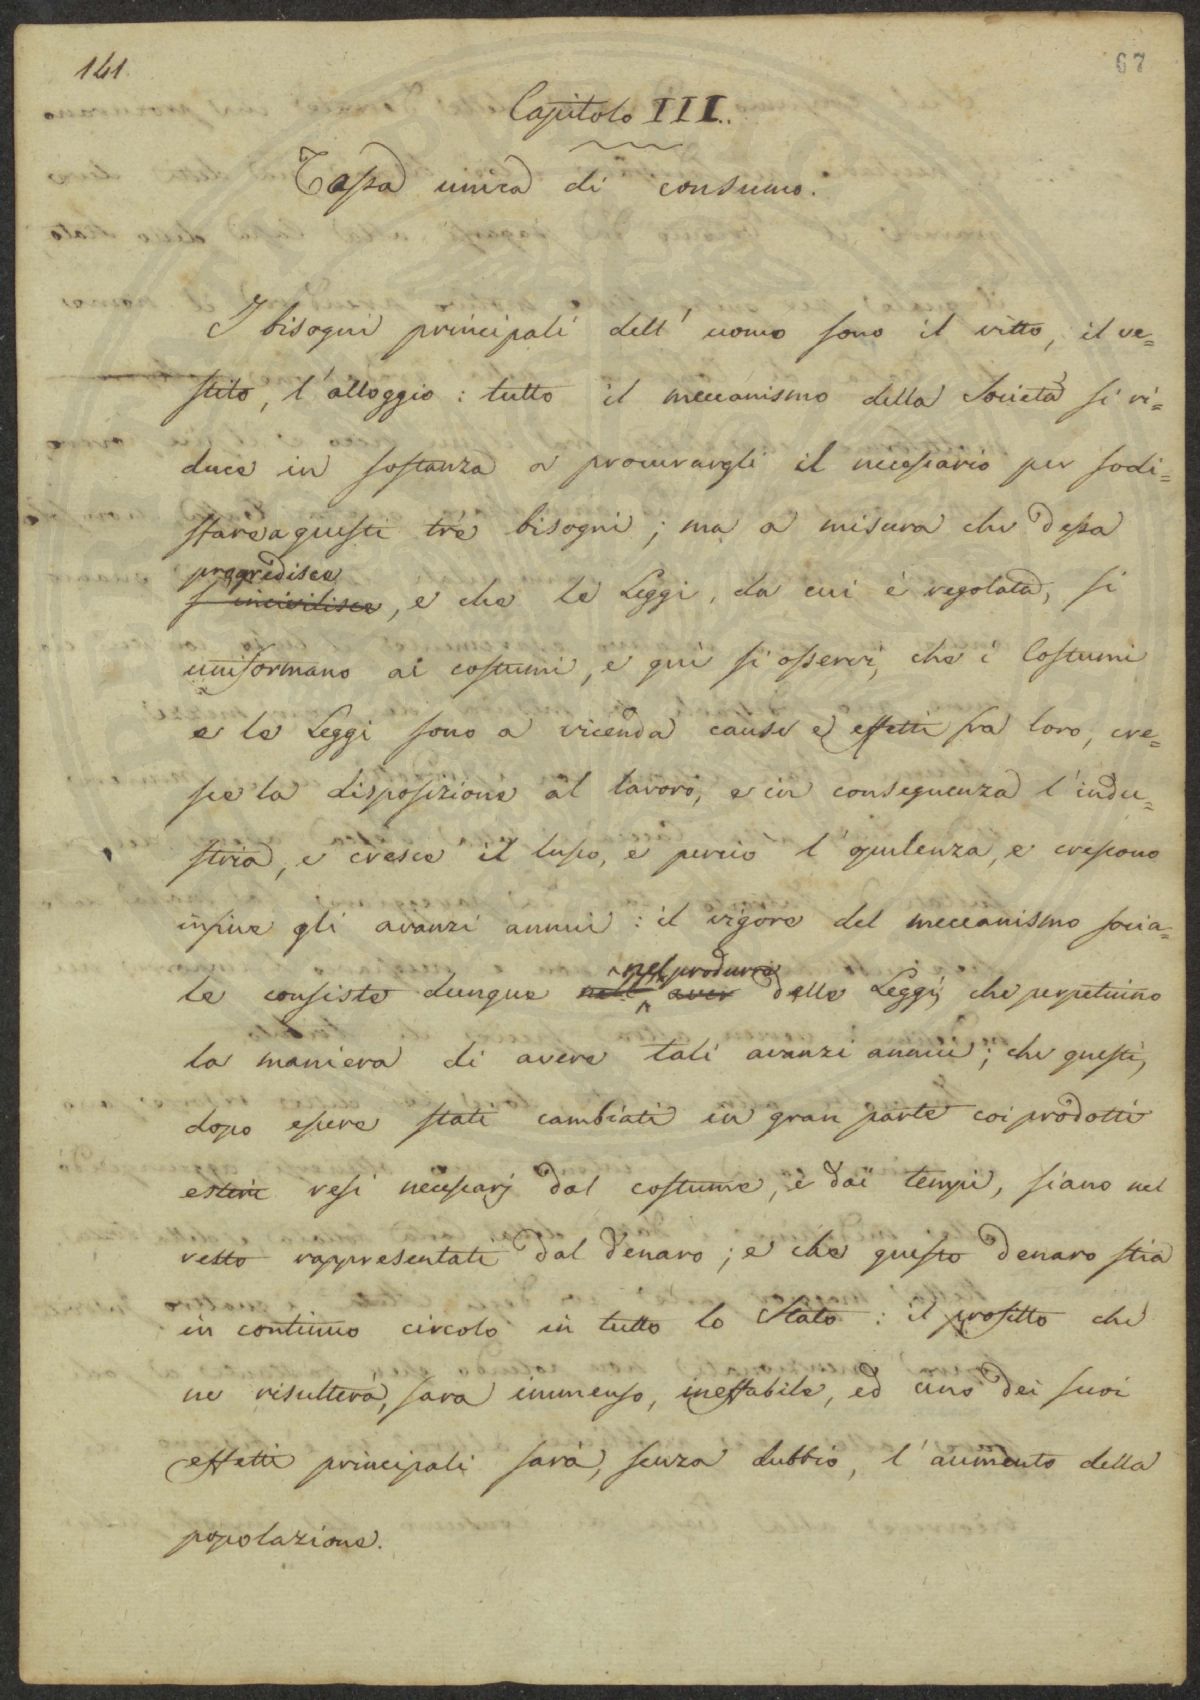 141.
67
Capitolo III.
Tassa unica di consumo.
I bisogni principali dell'uomo sono il vitto, il ve=
stito, l'alloggio: tutto il meccanismo della Società si ri=
duce in sostanza a procurargli il necessario per sodi=
sfare a questi tre bisogni; ma a misura che dessa
progredisce
s'incivilisce, e che le Leggi, da cui è regolata, si
uniformano ai costumi, e qui si osservi, che i Costumi
e le Leggi sono a vicenda cause e effetti fra loro, cre=
sce la disposizione al lavoro, e in conseguenza l'indu=
stria, e cresce il lusso, e perciò l'opulenza, e crescono
infine gli avanzi annui: il vigore del meccanismo socia=
nel produrre
le consiste dunque nell' aver delle Leggi, che perpetuino
la maniera di avere tali avanzi annui; che questi,
dopo essere stati cambiati in gran parte coi prodotti
esteri resi necessarj dal costume, e dai tempi, siano nel
resto rappresentati dal denaro; e che questo denaro stia
in continuo circolo in tutto lo Stato: il profitto che
ne risulterà, sarà immenso, ineffabile, ed uno dei suoi
effetti principali sarà, senza dubbio, l'aumento della
popolazione.